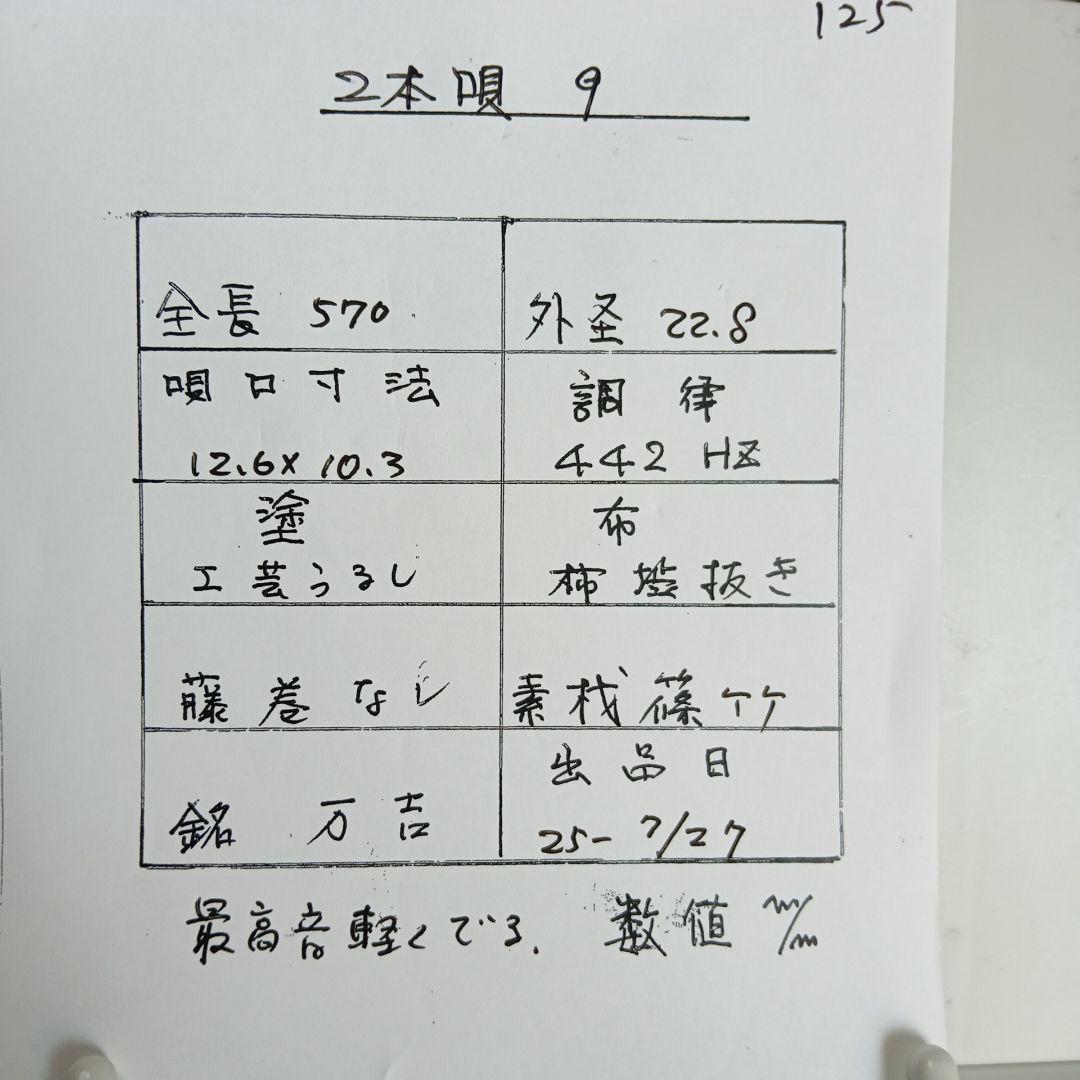 125
2本唄 9
全長 570
外圣 22.8
唄口寸法
12.6×10.3
調律
442 HZ
塗
工芸うるし
布
柿渋抜き
藤巻なし
素材篠竹
銘 万吉
出品日
25-7/27
最高音軽くでる. 数値 m/m